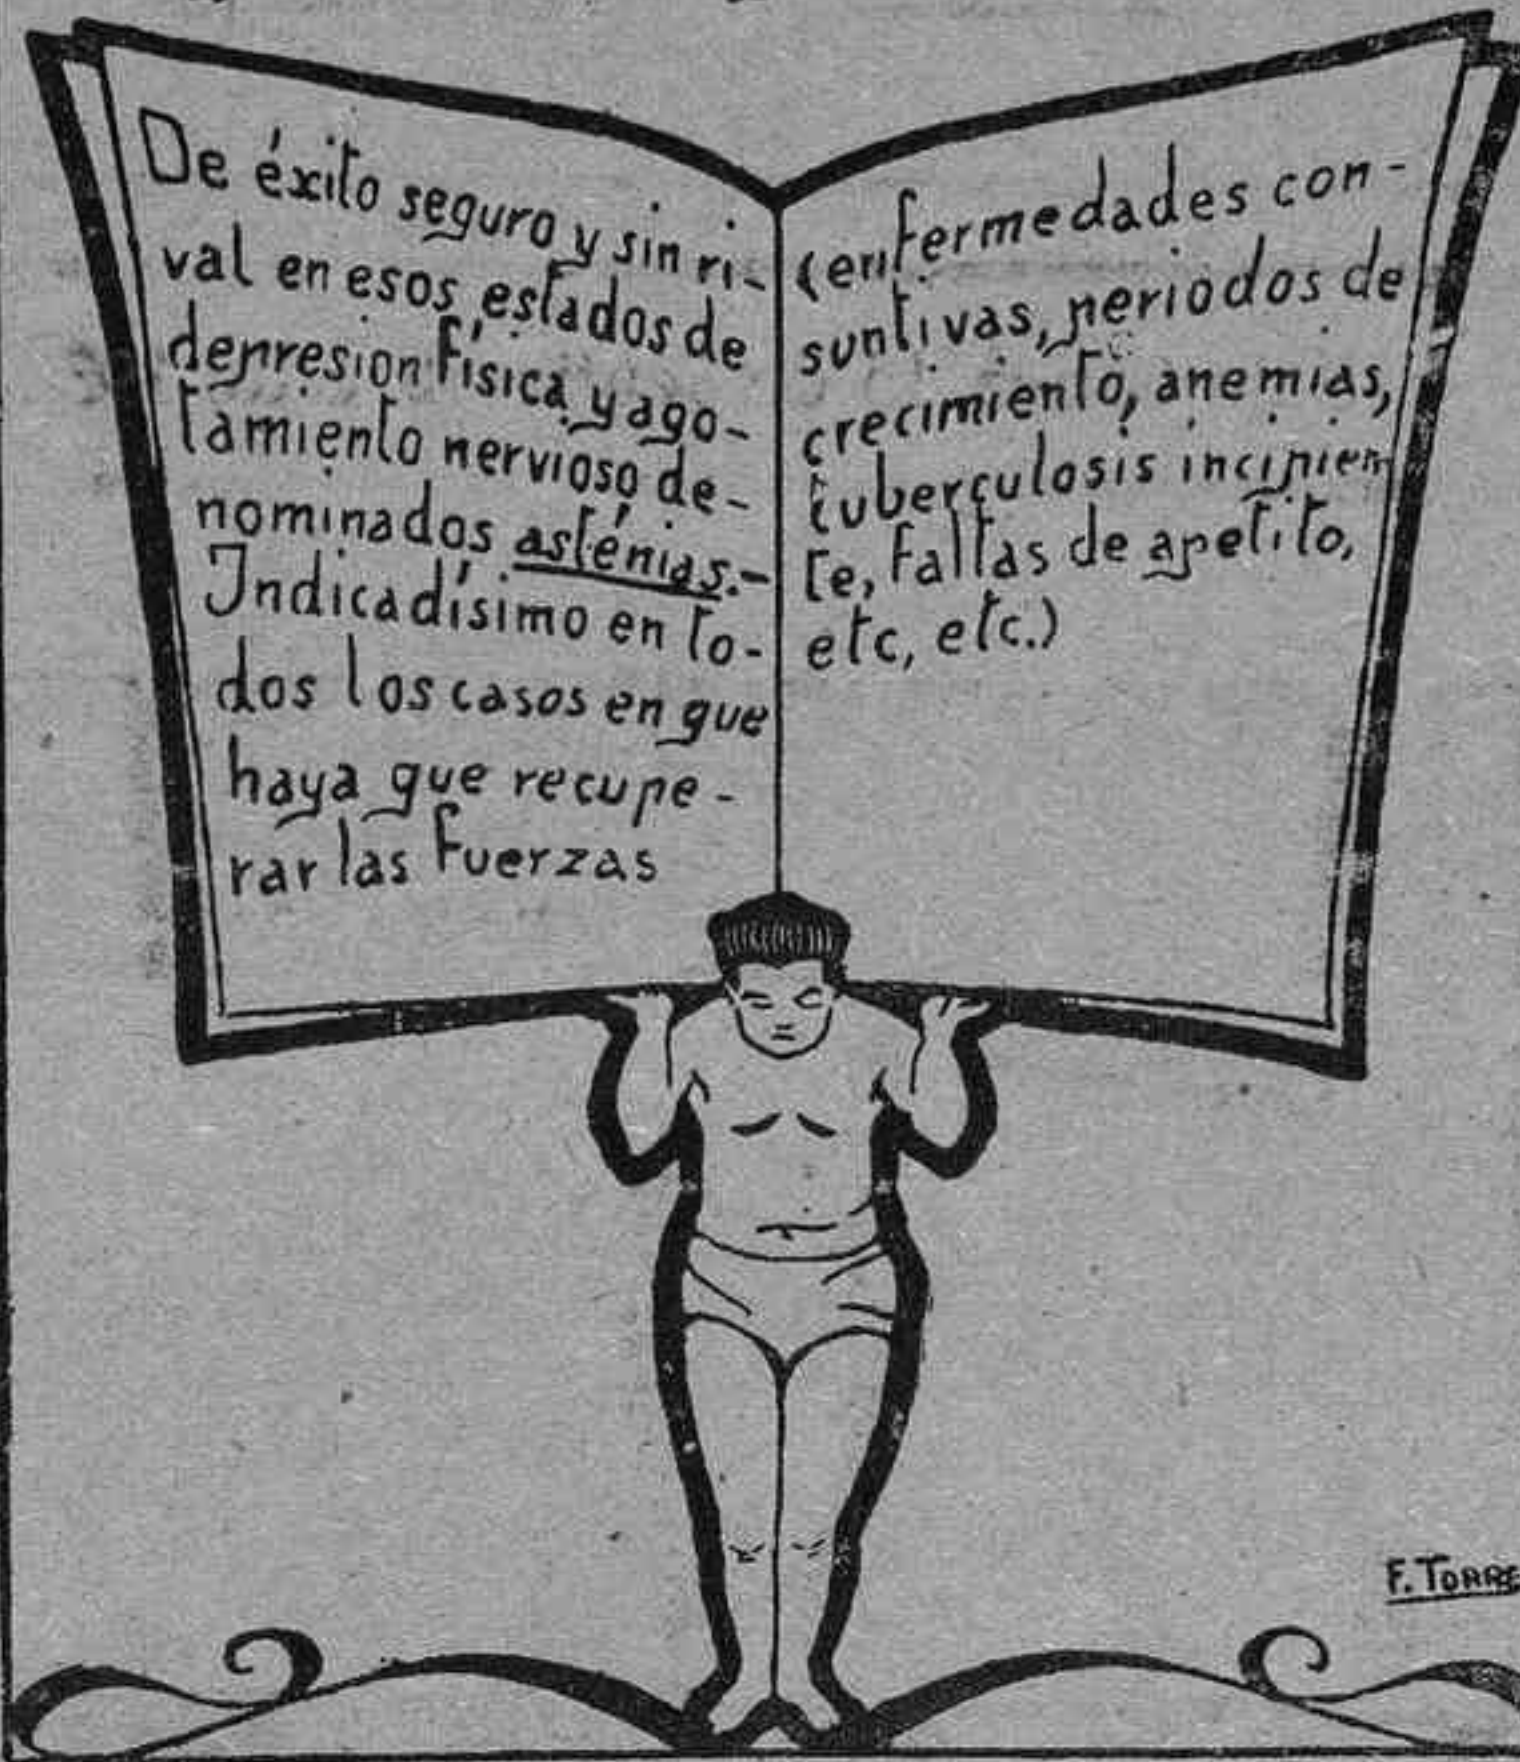 De éxito seguro y sin ri-
val en esos estados de
depresion física y ago-
tamiento nervioso de-
nominados asténias.-
Indicadísimo en to-
dos los casos en que
haya que recupe-
rar las fuerzas
(enfermedades con-
suntivas, periodos de
crecimiento, anemias,
tuberculosis incipien
te, faltas de apetito,
etc, etc.)
F. TORRE